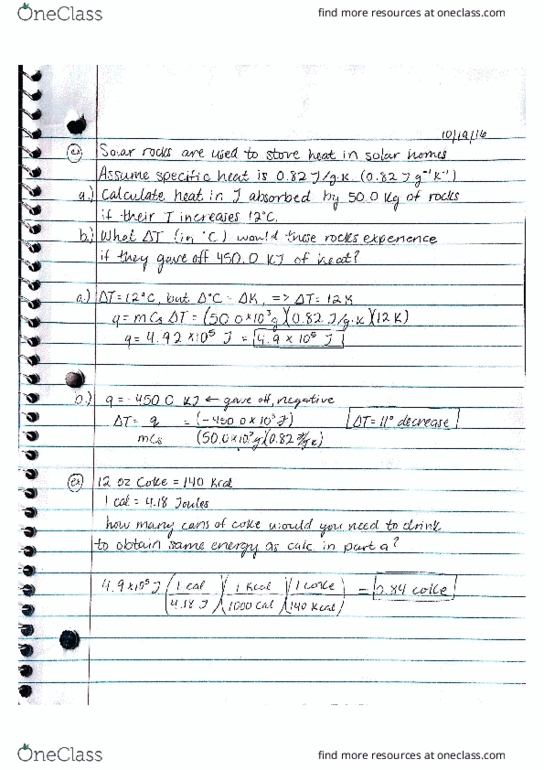 OneClass
find more resources at oneclass.com
10/19/16
ex Solar rocks are used to store heat in solar homes
Assume specific heat is 0.82 J/g·K. (0.82 J g⁻¹K⁻¹)
a.) Calculate heat in J absorbed by 50.0 Kg of rocks
if their T increases 12°C.
b.) What ΔT (in °C) would these rocks experience
if they gave off 450.0 KJ of heat?
a.) ΔT = 12°C, but Δ°C = ΔK, => ΔT = 12 K
q = mCs ΔT = (50.0×10³g)(0.82 J/g·K)(12 K)
q = 4.92×10⁵ J = 4.9 × 10⁵ J
b.) q = -450.0 KJ ← gave off, negative
ΔT = q = (-450.0×10³ J) ΔT = 11° decrease
mCs (50.0×10³g)(0.82 J/g·K)
ex 12 oz Coke = 140 Kcal
1 cal = 4.18 Joules
how many cans of coke would you need to drink
to obtain same energy as calc in part a?
4.9×10⁵ J (1 cal / 4.18 J)(1 Kcal / 1000 cal)(1 coke / 140 Kcal) = 0.84 coke
OneClass
find more resources at oneclass.com